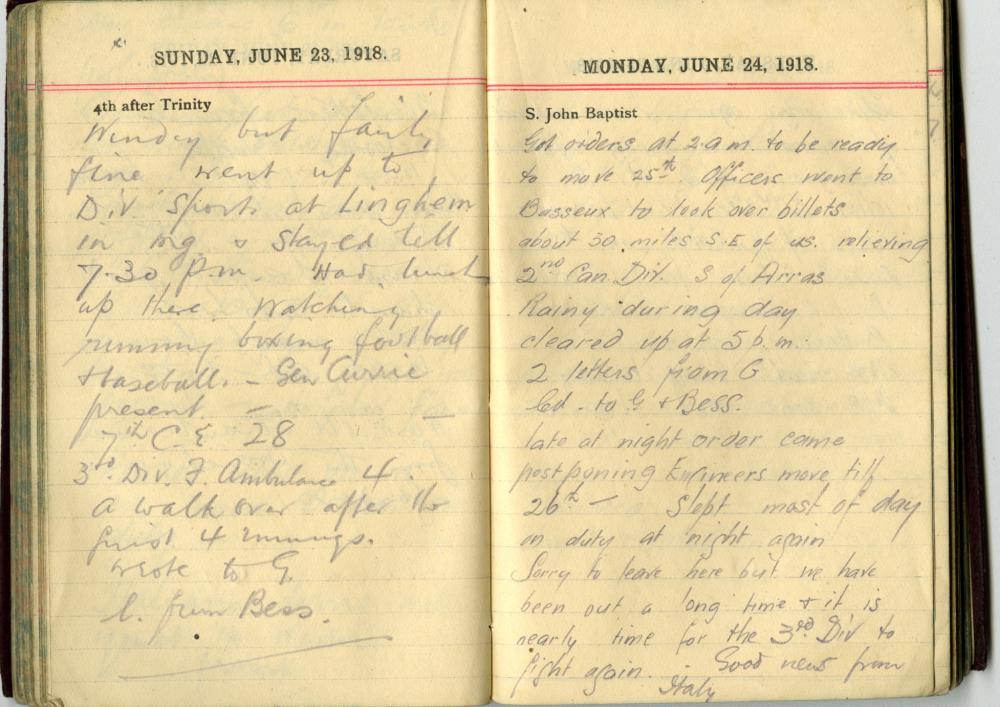 SUNDAY, JUNE 23, 1918.
4th after Trinity
Windy but fairly
fine went up to
Div. Sports at Linghem
in mg & stayed till
7.30 p.m. Had lunch
up there. Watching
running boxing football
& baseball. – Gen Currie
present. –
7th C.E 28
3rd. Div. F. Ambulance 4.
a walk over after the
first 4 innings.
wrote to G.
l. from Bess.
MONDAY, JUNE 24, 1918.
S. John Baptist
Got orders at 2 a m. to be ready
to move 25th. Officers went to
Basseux to look over billets
about 30 miles S.E of us. relieving
2nd Can. Div. S of Arras
Rainy during day
cleared up at 5 p.m.
2 letters from G
to G + Bess.
late at night order came
postponing Engineers move till
26th – Slept most of day
on duty at night again
Sorry to leave here but we have
been out a long time + it is
nearly time for the 3rd. Div to
fight again. Good news from
Italy